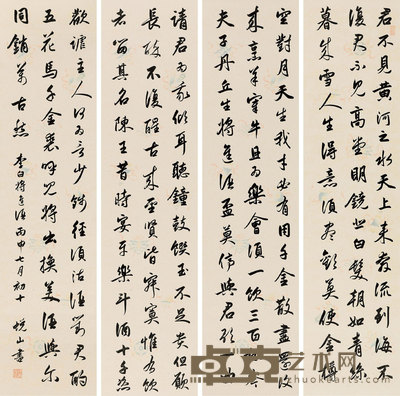 君不見黃河之水天上来奔流到海不
復回君不見高堂明鏡悲白髮朝如青絲
暮成雪人生得意須盡歡莫使金樽
空對月天生我才必有用千金散盡還復
来烹羊宰牛且為樂會須一飲三百杯岑
夫子丹丘生將進酒盃莫停與君歌一曲
請君為我傾耳聽鐘鼓饌玉不足貴但願
長醉不復醒古来聖賢皆寂寞惟有飲
者留其名陳王昔時宴平樂斗酒十千恣
歡謔主人何為言少錢徑須沽酒對君酌
五花馬千金裘呼兒將出換美酒與爾
同銷萬古愁 李白將進酒丙申七月初十 悦山書
艺术网